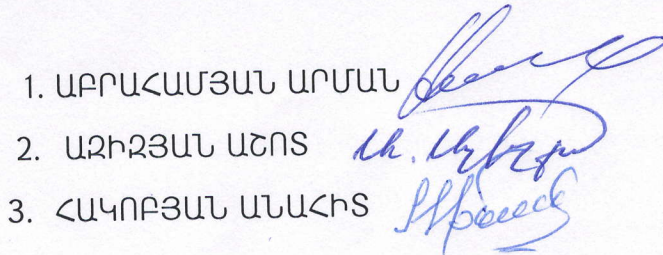 1. ԱԲՐԱՀԱՄՅԱՆ ԱՐՄԱՆ
2. ԱԶԻԶՅԱՆ ԱՇՈՏ
3. ՀԱԿՈԲՅԱՆ ԱՆԱՀԻՏ